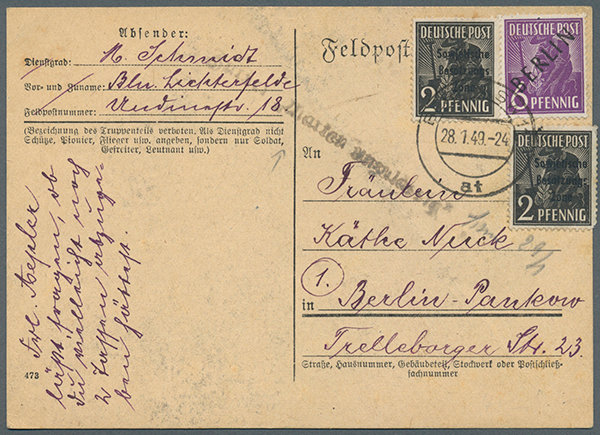 Absender:
Dienstgrad: M. Schmidt
Vor- und Zuname: Bln. Lichterfelde
Feldpostnummer: 18
(Bezeichnung des Truppenteils verboten. Als Dienstgrad nicht
Schütze, Pionier, Flieger usw. angeben, sondern nur Soldat,
Gefreiter, Leutnant usw.)
Feldpost
DEUTSCHE POST
Sowjetische
Besatzungs-
Zone
2 PFENNIG
DEUTSCHE POST
BERLIN
6 PFENNIG
28.1.49.-24
at
DEUTSCHE POST
Sowjetische
Besatzungs-
Zone
2 PFENNIG
Marken ungültig
An
Fräulein
Käthe Nuck
1.
in Berlin-Pankow
Trelleborger Str. 23
Straße, Hausnummer, Gebäudeteil, Stockwerk oder Postschließ-
fachnummer
Frl.
läßt fragen, ob
Du vielleicht noch
2 Tassen
ben hättest.
473